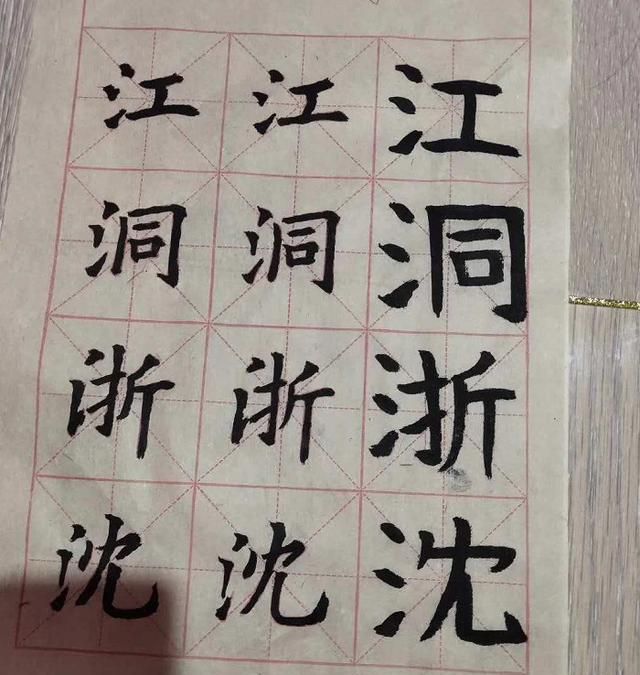 江江江
洞洞洞
浙浙浙
沈沈沈